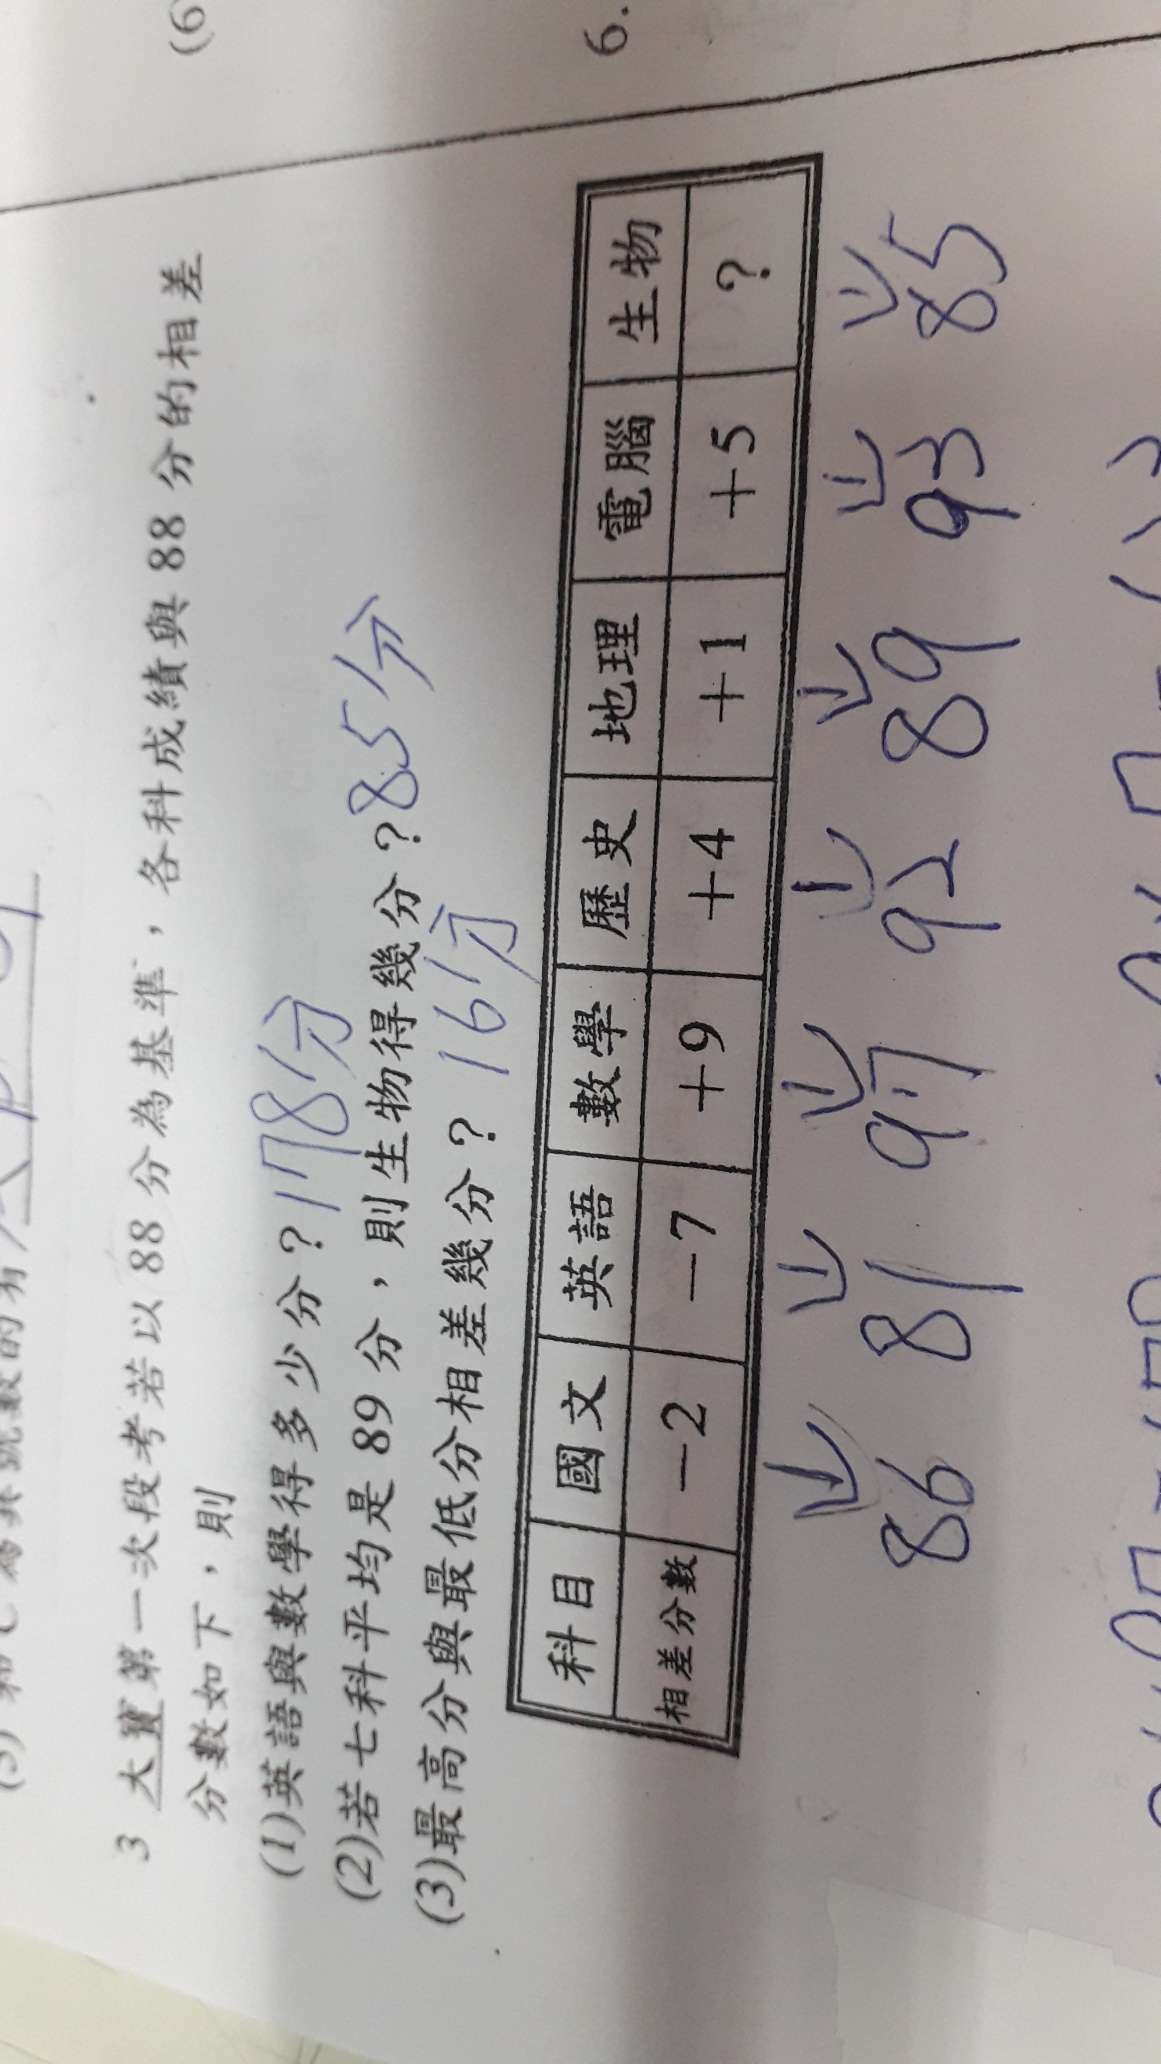 (6
6.
3 大寶第一次段考若以 88 分為基準，各科成績與 88 分的相差
分數如下，則
(1)英語與數學得多少分？178分
(2)若七科平均是 89 分，則生物得幾分？85分
(3)最高分與最低分相差幾分？ 16分
科目 國文 英語 數學 歷史 地理 電腦 生物
相差分數 －2 －7 ＋9 ＋4 ＋1 ＋5 ？
86 81 97 92 89 93 85